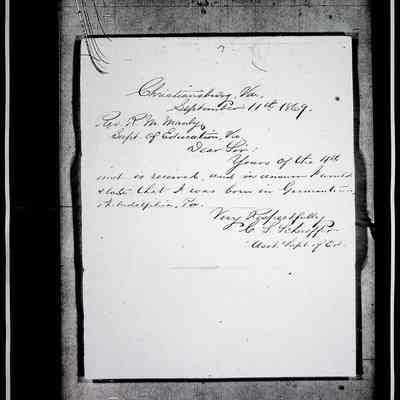 Christiansburg, Va.
September 11th 1869.
Rev. R. M. Manly,
Supt. of Education, Va
Dear Sir:
Yours of the 4th
inst is received, and in answer I would
state that I was born in Germantown
Philadelphia, Pa.
Very Respectfully
C. S. Schaeffer
Asst. Supt. of Ed.